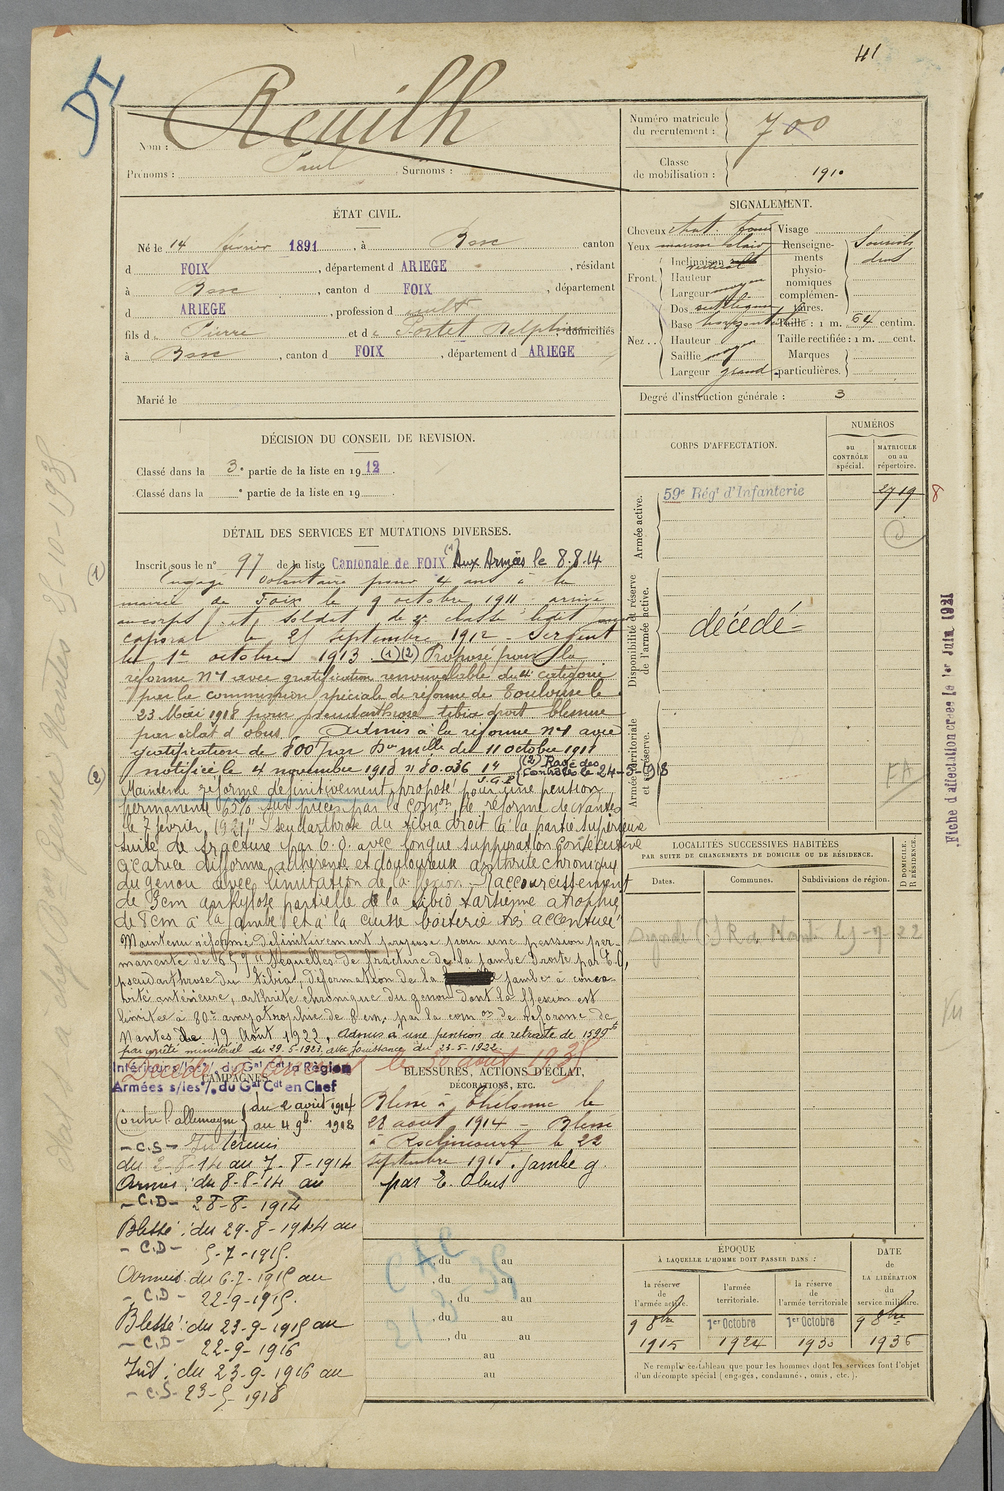 41
DI
Nom : Reuilh
Prénoms : Paul Surnoms :
Numéro matricule du recrutement : 700
Classe de mobilisation : 1910
ÉTAT CIVIL.
Né le 14 février 1891, à canton
d FOIX, département d ARIEGE, résidant
à, canton d FOIX, département
d ARIEGE, profession d cult
fils d Pierre et de Portet Delphine domiciliés
à, canton d FOIX, département d ARIEGE
Marié le
SIGNALEMENT.
Cheveux chat. foncé Visage
Yeux marron clair Renseignements physionomiques complémentaires. Sourcils
Front. Inclinaison vertical
Hauteur moyen
Largeur moyen
Nez.. Dos rectiligne
Base horizontale Taille : 1 m. 64 centim.
Hauteur Taille rectifiée : 1 m. cent.
Saillie moyen Marques
Largeur grand particulières.
Degré d'instruction générale : 3
DÉCISION DU CONSEIL DE REVISION.
Classé dans la 3e partie de la liste en 1912.
Classé dans la e partie de la liste en 19 .
CORPS D'AFFECTATION.
NUMÉROS
au CONTRÔLE spécial.
MATRICULE ou au répertoire.
Armée active.
59e Régt d'Infanterie 2719
Disponibilité et réserve de l'armée active.
décédé
Armée territoriale et sa réserve.
FA
Fiche d'affectation créée le 1er Juin 1921
DÉTAIL DES SERVICES ET MUTATIONS DIVERSES.
Inscrit sous le n° 97 de la liste Cantonale de FOIX (1) Aux Armées le 8.8.14
Engagé volontaire pour 4 ans à la
mairie de Foix le 9 octobre 1911 arrivé
au corps et soldat de 2e classe ledit jour
caporal le 25 septembre 1912 - Sergent
le 1er octobre 1913 (1)(2) Proposé pour la
réforme N°1 avec gratification renouvelable de 4e catégorie
par la commission spéciale de réforme de Toulouse le
23 Mai 1918 pour pseudarthrose tibia droit blessure
par éclat d'obus. Admis à la réforme N°1 avec
gratification de 800f par Don melle du 11 octobre 1918
notifiée le 4 novembre 1918 n° 80.036 (2) Rayé des contrôles le 24-5-1918
Maintenu réformé définitivement, proposé pour une pension
permanente 65% sur pièces par la Comon de réforme de Nantes
le 7 février 1921 "Pseudarthrose du tibia droit à la partie supérieure
suite de fracture par E.O. avec longue suppuration consécutive
cicatrice difforme, adhérente et douloureuse arthrite chronique
du genou avec limitation de la flexion. Raccourcissement
de 3cm ankylose partielle de la tibio tarsienne atrophie
de 8cm à la jambe et à la cuisse boiterie très accentuée"
Maintenu réformé définitivement proposé pour une pension per-
manente de 65% "Séquelles de fracture de la jambe droite par E.O.
pseudarthrose du tibia, déformation de la jambe à conca-
vité antérieure, arthrite chronique du genou dont la flexion est
limitée à 80° amyotrophie de 8cm par la comon de réforme de
Nantes de 19 Août 1922. Admis à une pension de retraite de 1599f
par arrêté ministériel du 29.5.1923, avec jouissance du 23.5.1922.
Décédé le août 1935
Intérieur s/les o/. du Gal Cdt la Région
Armées s/les o/. du Gal Cdt en Chef
CAMPAGNES.
Contre l'allemagne du 2 août 1914
au 4 9b. 1918
- C.S - Intérieur
du 2-8-14 au 7-8-1914
Armées : du 8-8-14 au
- C.D - 28-8-1914
Blessé : du 29-8-1914 au
- C.D - 5-7-1915.
Armées : du 6-7-1915 au
- C.D - 22-9-1915.
Blessé : du 23-9-1915 au
- C.D - 22-9-1916
Int : du 23-9-1916 au
- C.S - 23-5-1918
BLESSURES, ACTIONS D'ÉCLAT,
DÉCORATIONS, ETC.
Blessé à Thelonne le
28 août 1914 - Blessé
à Roclincourt le 22
septembre 1915. Jambe g.
par E. Obus
, du au
, du au
, du au
, du au
, du au
au
au
21 3 35
LOCALITÉS SUCCESSIVES HABITÉES
PAR SUITE DE CHANGEMENTS DE DOMICILE OU DE RÉSIDENCE.
Dates. Communes. Subdivisions de région. D DOMICILE. R RÉSIDENCE.
ÉPOQUE
À LAQUELLE L'HOMME DOIT PASSER DANS :
la réserve de l'armée active. l'armée territoriale. la réserve de l'armée territoriale
DATE de LA LIBÉRATION du service militaire.
9 8bre 1915
1er Octobre 1924
1er Octobre 1930
9 8bre 1936
Ne remplir ce tableau que pour les hommes dont les services font l'objet
d'un décompte spécial (engagés, condamnés, omis, etc.).